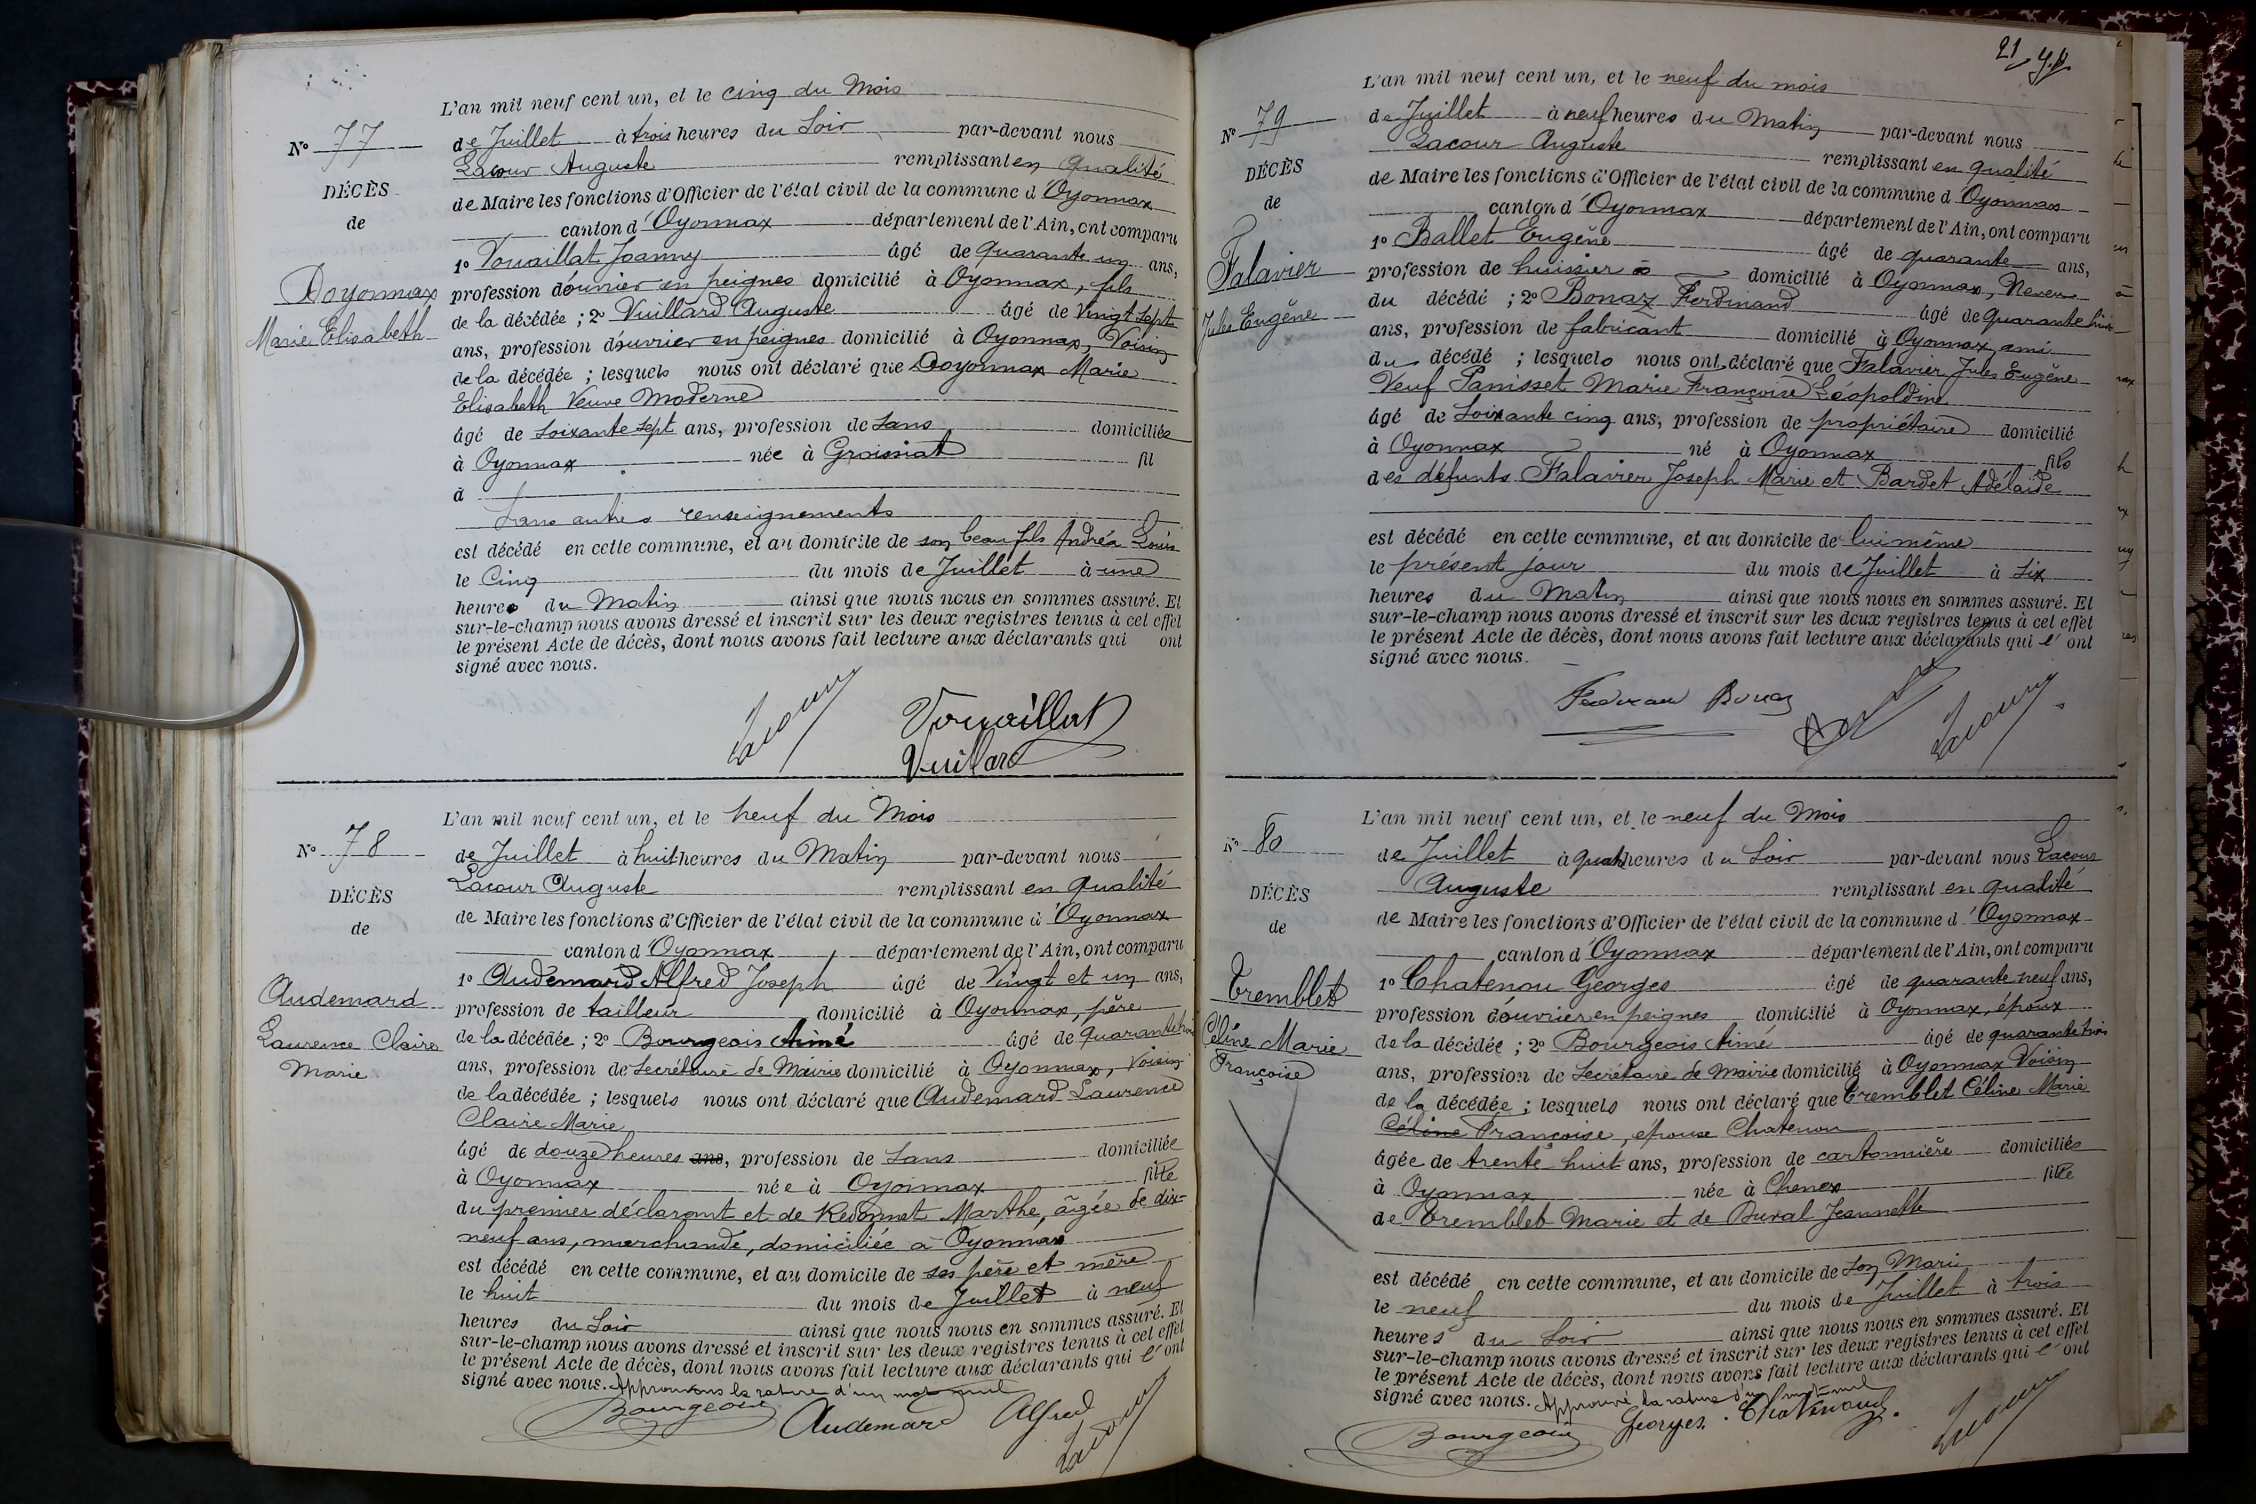 L'an mil neuf cent un, et le cinq du Mois
N° 77
de Juillet à trois heures du Soir par-devant nous
Lacour Auguste remplissant en qualité
DÉCÈS
de Maire les fonctions d'Officier de l'état civil de la commune d'Oyonnax
de
canton d'Oyonnax département de l'Ain, ont comparu
1° Vouaillat Joanny âgé de quarante un ans,
Doyonnax
profession d'ouvrier en peignes domicilié à Oyonnax, fils
de la décédée ; 2° Vuillard Auguste âgé de Vingt sept
Marie Elisabeth
ans, profession d'ouvrier en peignes domicilié à Oyonnax, Voisin
de la décédée ; lesquels nous ont déclaré que Doyonnax Marie
Elisabeth Veuve Moderne
âgé de soixante sept ans, profession de sans domiciliée
à Oyonnax née à Groissiat fil
d
Sans autres renseignements
est décédé en cette commune, et au domicile de son beau fils Andréa Louis
le Cinq du mois de Juillet à une
heure du Matin ainsi que nous nous en sommes assuré. Et
sur-le-champ nous avons dressé et inscrit sur les deux registres tenus à cet effet
le présent Acte de décès, dont nous avons fait lecture aux déclarants qui ont
signé avec nous.
Lacour
Vouaillat
Vuillard
L'an mil neuf cent un, et le neuf du Mois
N° 78
de Juillet à huit heures du Matin par-devant nous
Lacour Auguste remplissant en qualité
DÉCÈS
de Maire les fonctions d'Officier de l'état civil de la commune d'Oyonnax
de
canton d'Oyonnax département de l'Ain, ont comparu
1° Audemard Alfred Joseph âgé de Vingt et un ans,
Audemard
profession de tailleur domicilié à Oyonnax, père
Laurence Claire
de la décédée ; 2° Bourgeois Aimé âgé de quarante trois
Marie
ans, profession de Secrétaire de Mairie domicilié à Oyonnax, Voisin
de la décédée ; lesquels nous ont déclaré que Audemard Laurence
Claire Marie
âgé de douze heures ans, profession de sans domiciliée
à Oyonnax née à Oyonnax fille
du premier déclarant et de Redonnet Marthe, âgée de dix-
neuf ans, marchande, domiciliée à Oyonnax
est décédé en cette commune, et au domicile de ses père et mère
le huit du mois de Juillet à neuf
heures du Soir ainsi que nous nous en sommes assuré. Et
sur-le-champ nous avons dressé et inscrit sur les deux registres tenus à cet effet
le présent Acte de décès, dont nous avons fait lecture aux déclarants qui l'ont
signé avec nous. Approuvons la rature d'un mot nul
Bourgeois Audemard Alfred
Lacour
21
L'an mil neuf cent un, et le neuf du mois
N° 79
de Juillet à neuf heures du Matin par-devant nous
Lacour Auguste remplissant en qualité
DÉCÈS
de Maire les fonctions d'Officier de l'état civil de la commune d'Oyonnax
de
canton d'Oyonnax département de l'Ain, ont comparu
1° Ballet Eugène âgé de quarante ans,
Falavier
profession de huissier domicilié à Oyonnax, Neveu
du décédé ; 2° Bonaz Ferdinand âgé de quarante huit
Jules Eugène
ans, profession de fabricant domicilié à Oyonnax ami
du décédé ; lesquels nous ont déclaré que Falavier Jules Eugène
Veuf Panisset Marie Françoise Léopoldine
âgé de soixante cinq ans, profession de propriétaire domicilié
à Oyonnax né à Oyonnax fils
des défunts Falavier Joseph Marie et Bardet Adélaïde
est décédé en cette commune, et au domicile de lui même
le présent jour du mois de Juillet à six
heures du Matin ainsi que nous nous en sommes assuré. Et
sur-le-champ nous avons dressé et inscrit sur les deux registres tenus à cet effet
le présent Acte de décès, dont nous avons fait lecture aux déclarants qui l'ont
signé avec nous.
Ferdinand Bonaz
Lacour
L'an mil neuf cent un, et le neuf du Mois
N° 80
de Juillet à quatre heures du Soir par-devant nous Lacour
Auguste remplissant en qualité
DÉCÈS
de Maire les fonctions d'Officier de l'état civil de la commune d'Oyonnax
de
canton d'Oyonnax département de l'Ain, ont comparu
1° Chatenou Georges âgé de quarante neuf ans,
Tremblet
profession d'ouvrier en peignes domicilié à Oyonnax, époux
Céline Marie
de la décédée ; 2° Bourgeois Aimé âgé de quarante trois
Françoise
ans, profession de Secrétaire de Mairie domicilié à Oyonnax Voisin
de la décédée ; lesquels nous ont déclaré que Tremblet Céline Marie
Céline Françoise, épouse Chatenou
âgée de trente huit ans, profession de cartonnière domiciliée
à Oyonnax née à Chenex fille
de Tremblet Marie et de Duval Jeannette
est décédé en cette commune, et au domicile de son Mari
le neuf du mois de Juillet à trois
heures du Soir ainsi que nous nous en sommes assuré. Et
sur-le-champ nous avons dressé et inscrit sur les deux registres tenus à cet effet
le présent Acte de décès, dont nous avons fait lecture aux déclarants qui l'ont
signé avec nous. Approuvé la rature d'un mot nul
Bourgeois Georges Chatenoud
Lacour